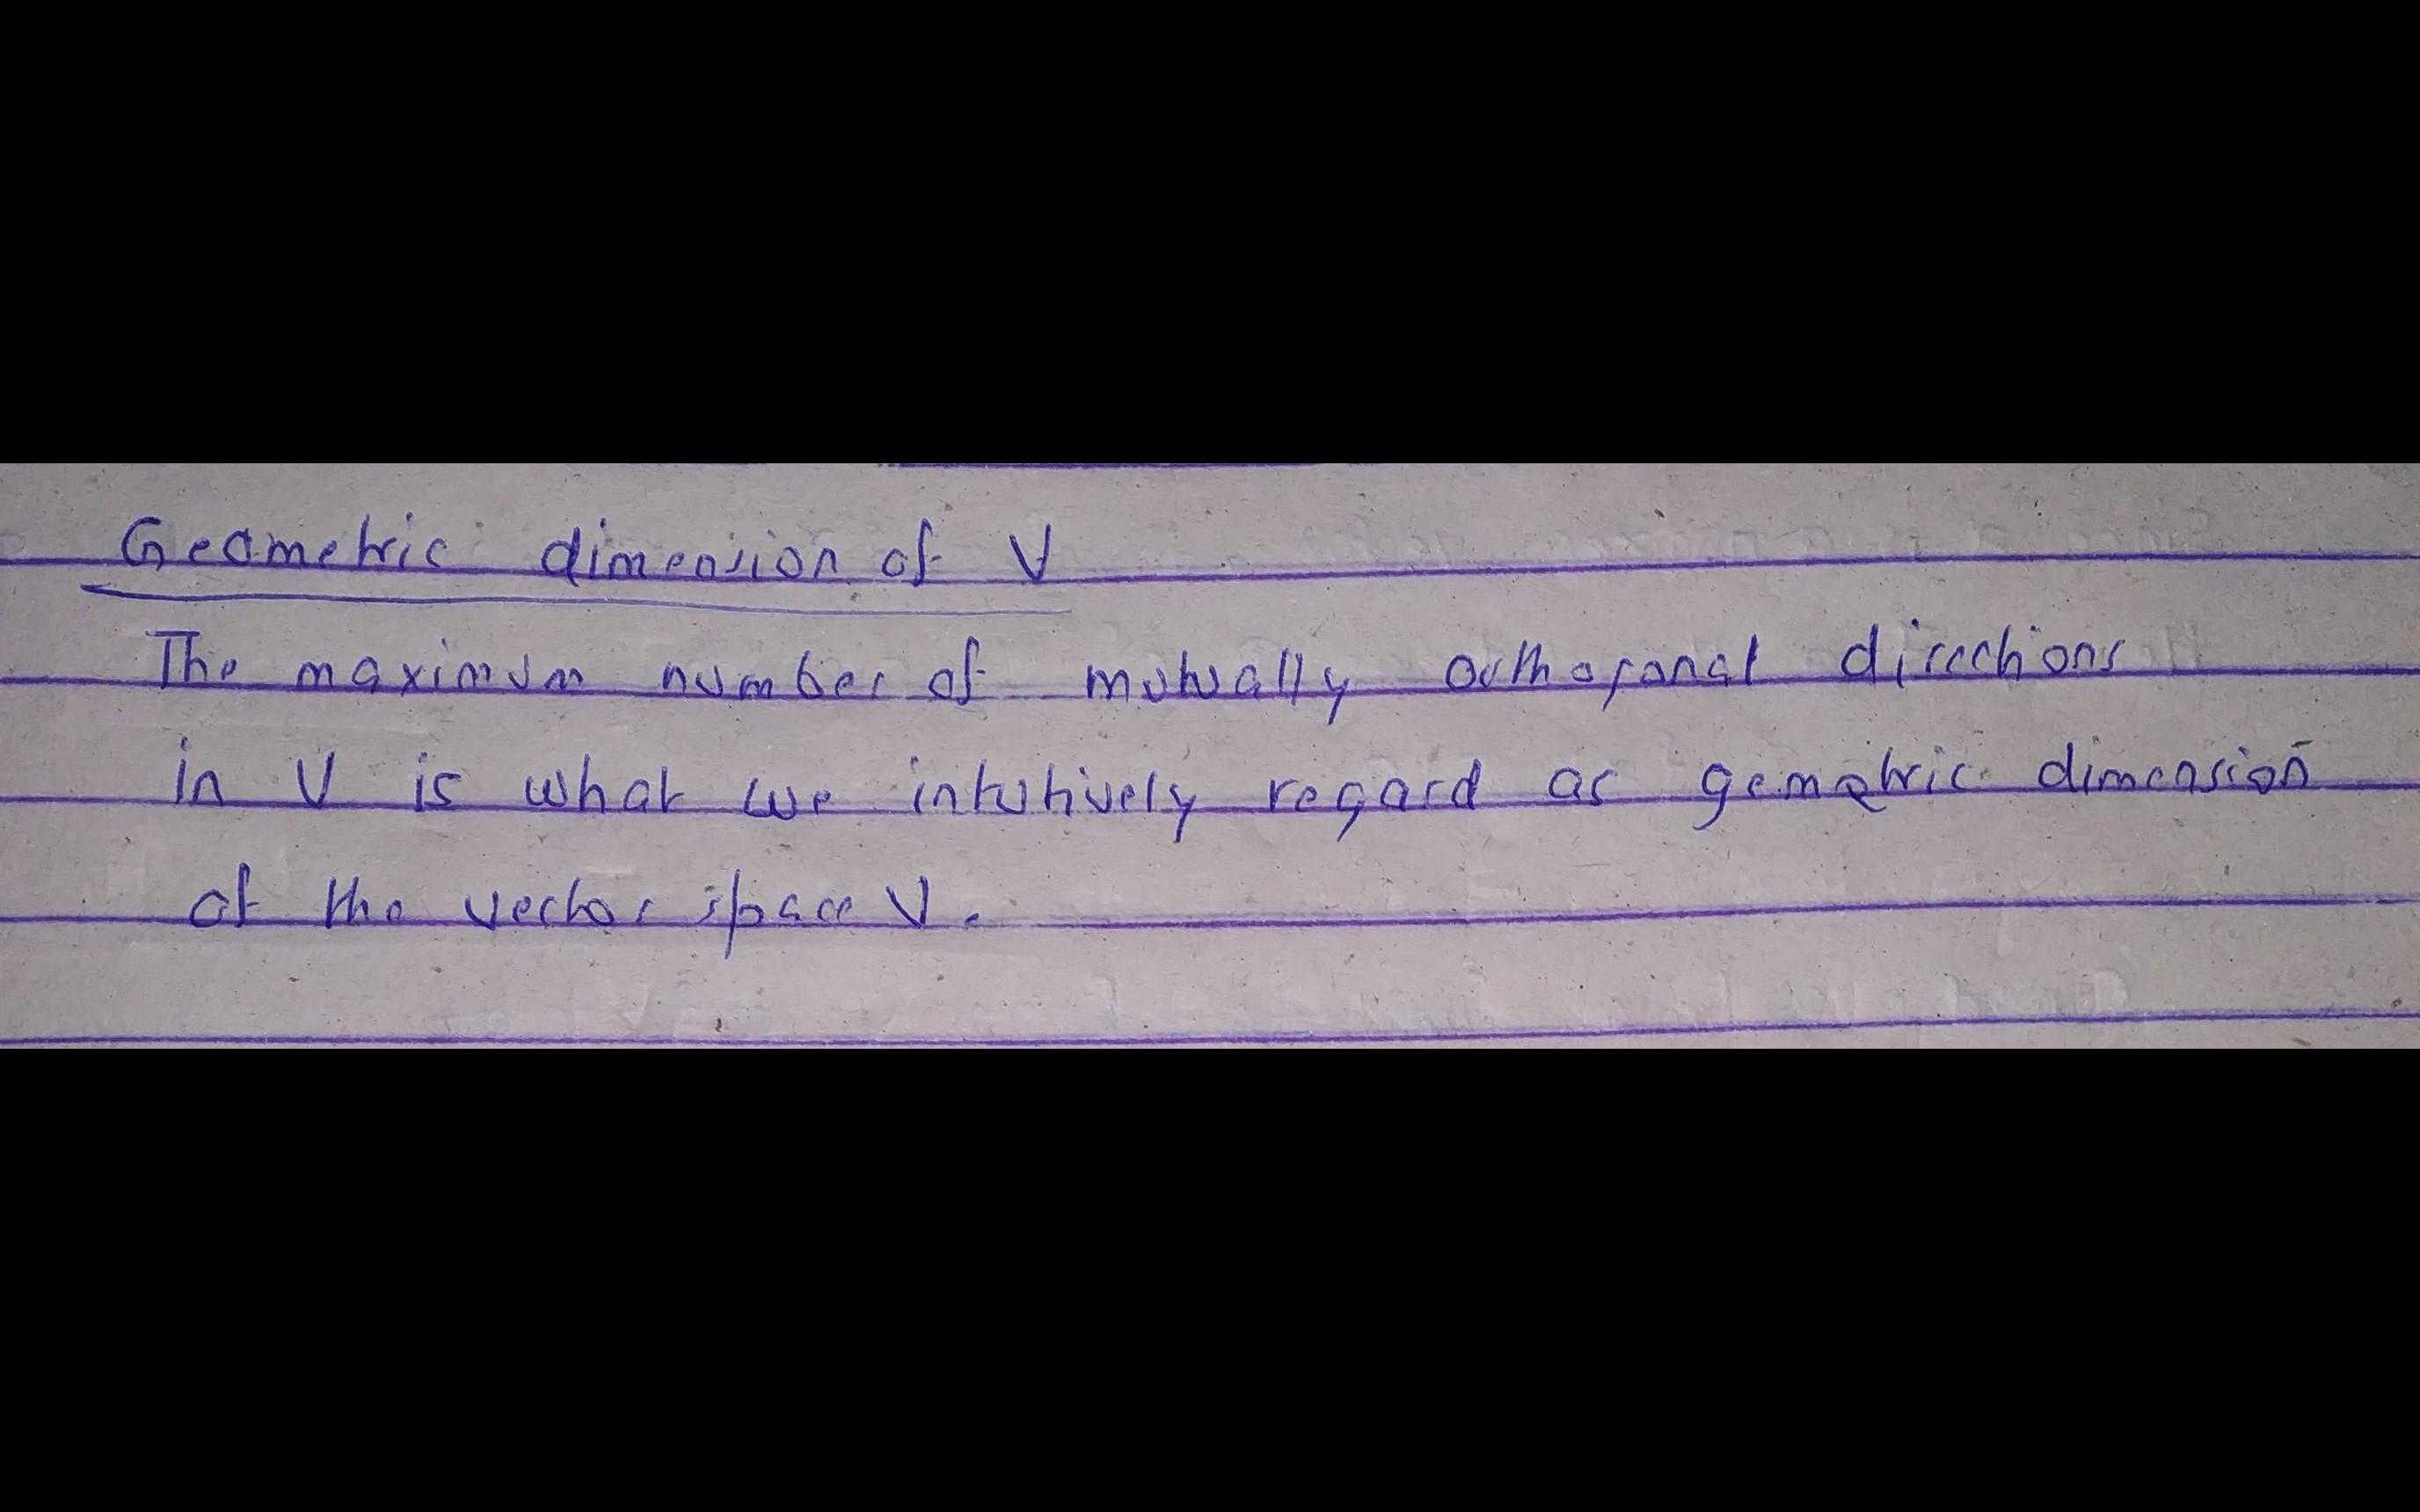 Geometric dimension of V
The maximum number of mutually orthogonal directions
in V is what we intutively regard as gemetric dimension
of the vector space V.